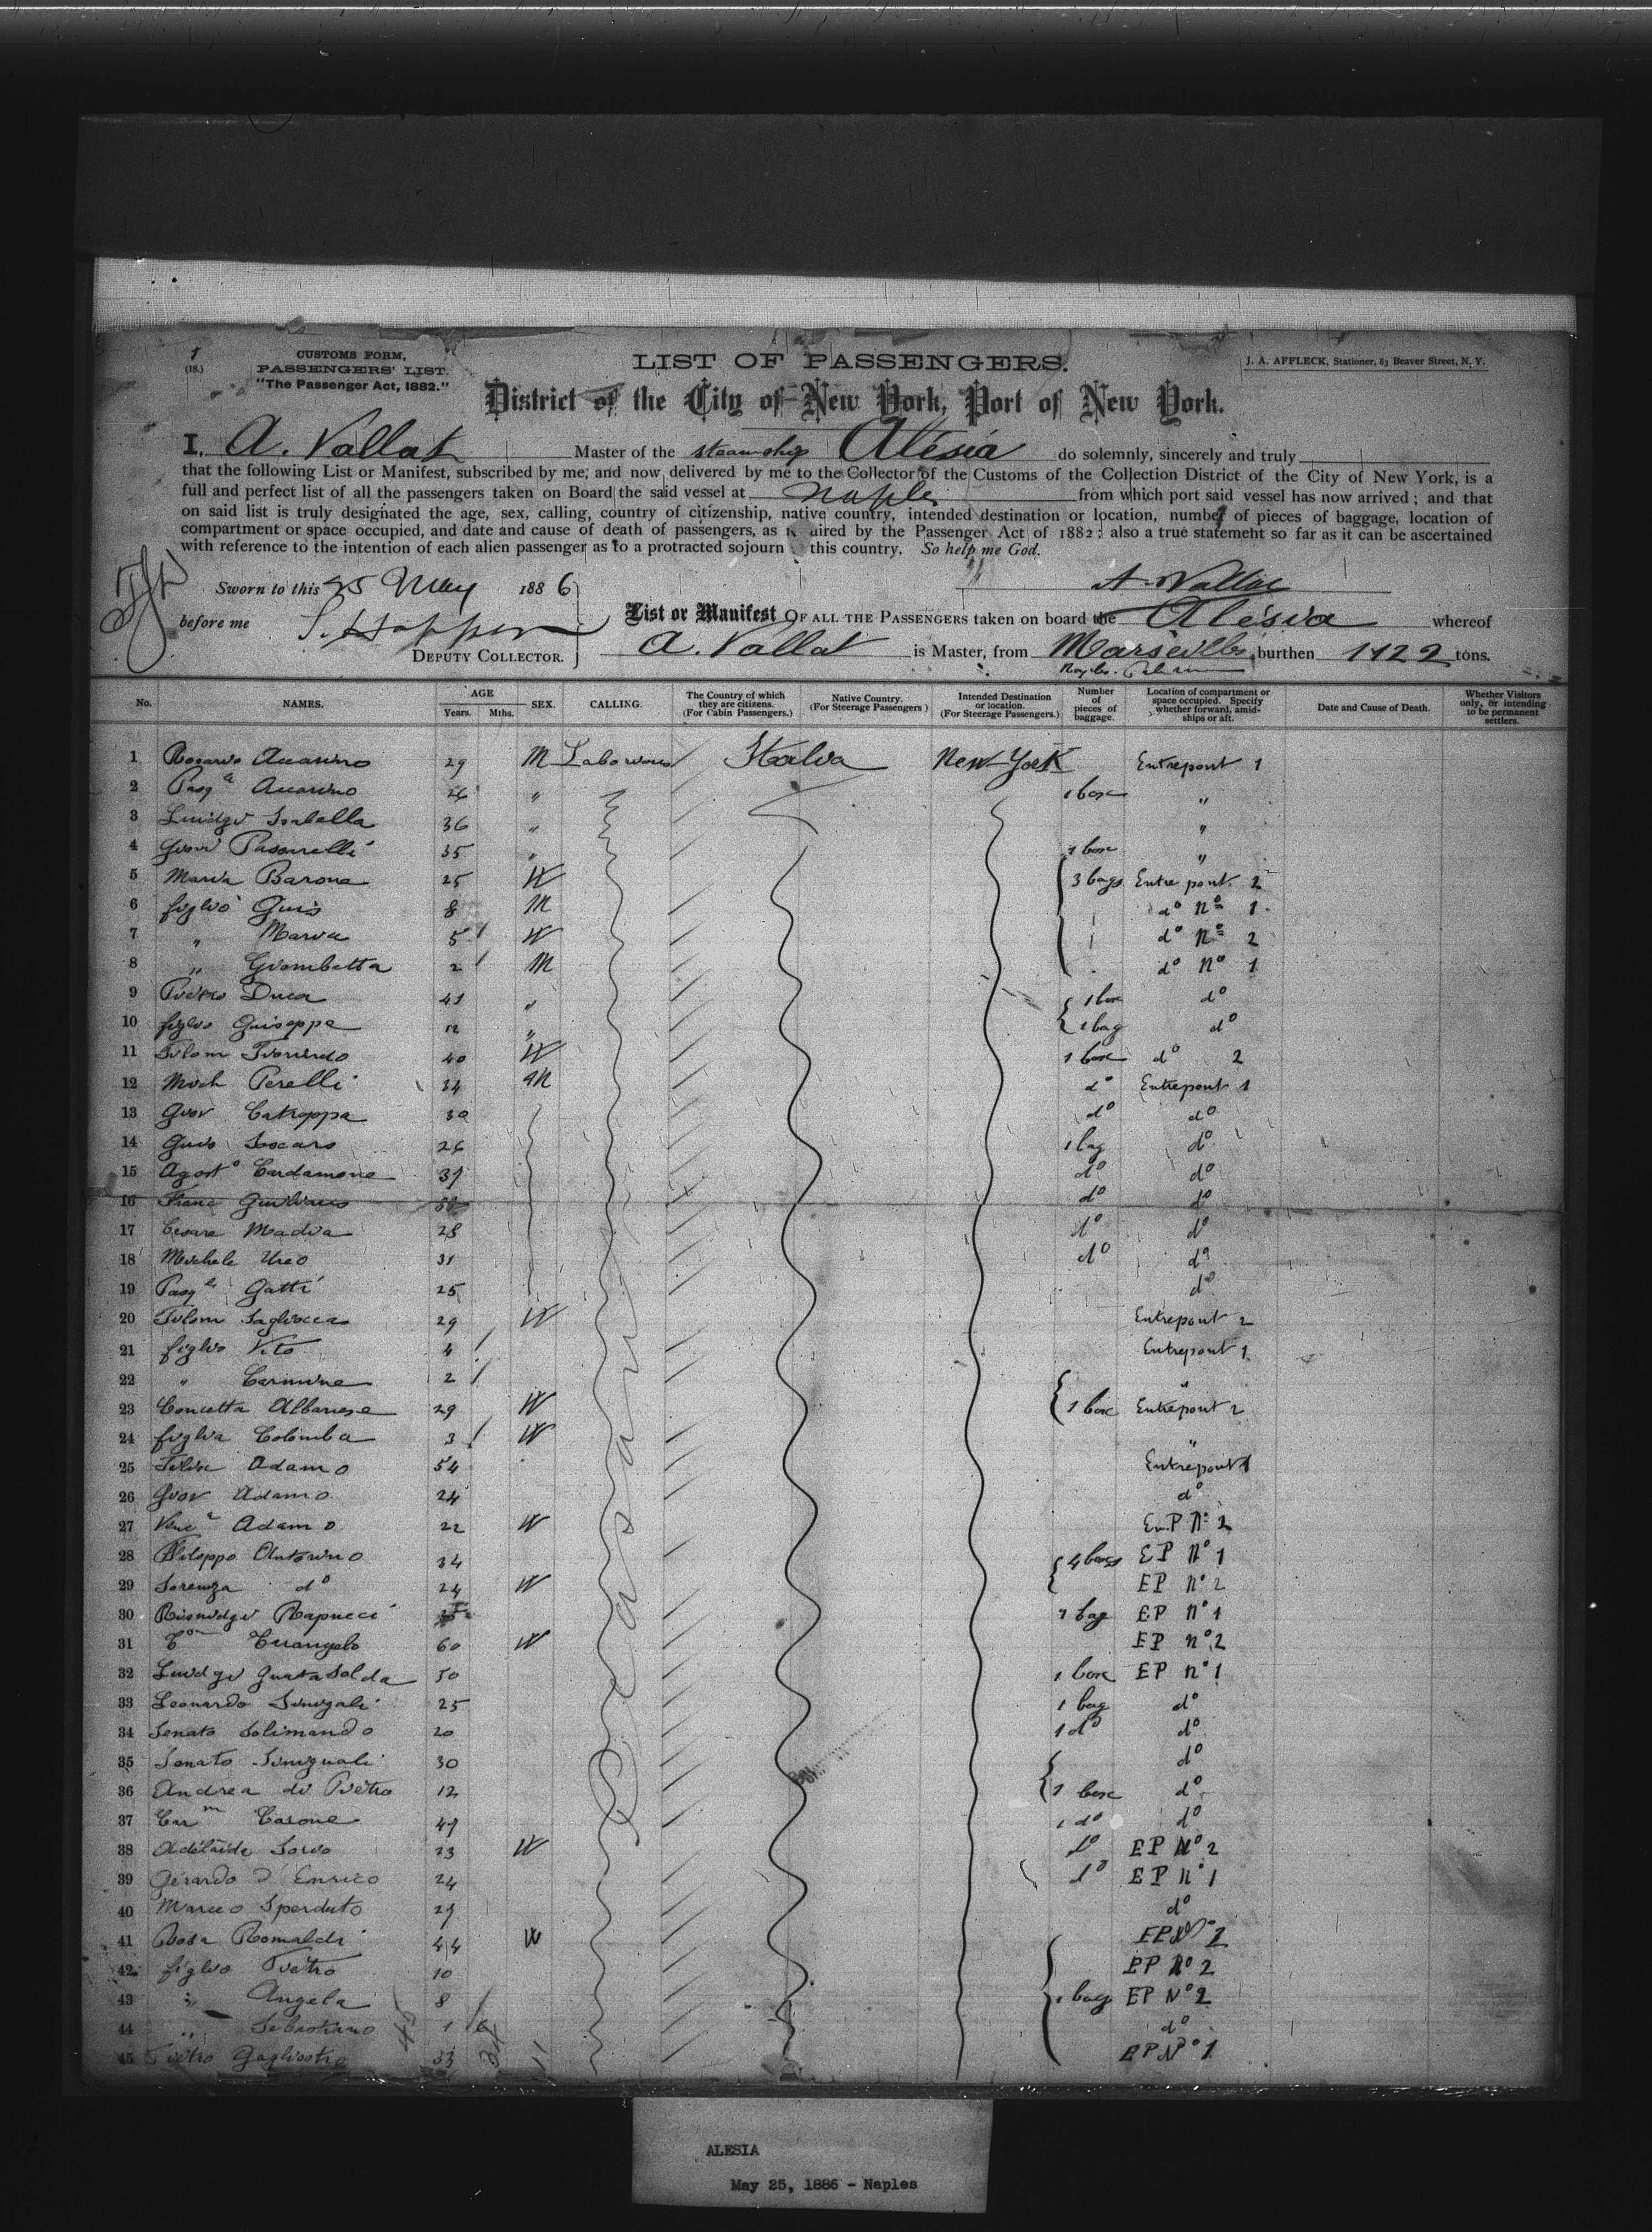 1
(18.)
CUSTOMS FORM,
PASSENGERS' LIST.
"The Passenger Act, 1882."
LIST OF PASSENGERS.
J. A. AFFLECK, Stationer, 83 Beaver Street, N. Y.
District of the City of New York, Port of New York.
I, A. Vallat Master of the steamship Alésia do solemnly, sincerely and truly
that the following List or Manifest, subscribed by me, and now delivered by me to the Collector of the Customs of the Collection District of the City of New York, is a
full and perfect list of all the passengers taken on Board the said vessel at Naples from which port said vessel has now arrived; and that
on said list is truly designated the age, sex, calling, country of citizenship, native country, intended destination or location, number of pieces of baggage, location of
compartment or space occupied, and date and cause of death of passengers, as required by the Passenger Act of 1882: also a true statement so far as it can be ascertained
with reference to the intention of each alien passenger as to a protracted sojourn this country. So help me God.
Sworn to this 25 May 1886
A. Vallat
before me
DEPUTY COLLECTOR.
List or Manifest OF ALL THE PASSENGERS taken on board the Alésia whereof
A. Vallat is Master, from Marseilles, burthen 1122 tons.
Naples
No. NAMES. AGE Years. Mths. SEX. CALLING. The Country of which they are citizens. (For Cabin Passengers.) Native Country. (For Steerage Passengers) Intended Destination or location. (For Steerage Passengers.) Number of pieces of baggage. Location of compartment or space occupied. Specify whether forward, amidships or aft. Date and Cause of Death. Whether Visitors only, or intending to be permanent settlers.
1 Rosario Accarino 29 M Labourers Italia New-York Entrepont 1
2 Pasqle Accarino 26 " 1 box "
3 Luidgi Isabella 36 " "
4 Giovi Passarelli 35 " 1 box "
5 Maria Barona 25 W 3 bags Entre pont 2
6 figlio Guis 8 M do No 1
7 " Maria 5 W do No 2
8 " Giombatta 2 M do No 1
9 Pietro Duca 41 " 1 box do
10 figlio Guiseppe 12 " 1 bag do
11 40 W 1 box do 2
12 Mich Perelli 34 M do Entrepont 1
13 Giov Catroppa 30 do do
14 26 1 bag do
15 Agosto Cardamone 37 do do
16 Franc do do
17 Cesare Madia 28 do do
18 Michele 31 do do
19 Pasqle Gatti 25 do
20 Filom 29 W Entrepont 2
21 figlio Vito 4 Entrepont 1
22 " Carmine 2 "
23 Concetta Albanese 29 W 1 box Entrepont 2
24 figlia Colomba 3 W "
25 Felice Adamo 54 Entrepont 1
26 Giov Adamo 24 do
27 Adamo 22 W En.P No 2
28 Filoppo Antonino 34 4 bags EP No 1
29 Lorenza do 24 W EP No 2
30 1 bag EP No 1
31 60 W EP No 2
32 Luidgi 50 1 box EP No 1
33 Leonardo 25 1 bag do
34 Solimando 20 1 do do
35 30 do
36 Andrea di Pietro 12 1 box do
37 Carm Carone 47 1 do do
38 Adélaide 23 W do EP No 2
39 Gérardo d'Enrico 24 do EP No 1
40 Marco Sperduto 27 do
41 Rosa Romaldi 44 W EP No 2
42 figlio Pietro 10 EP No 2
43 " Angela 8 1 bag EP No 2
44 " Sebastiano 1 6 do
45 Pietro Gagliostro 33 EP No 1
ALESIA
May 25, 1886 - Naples